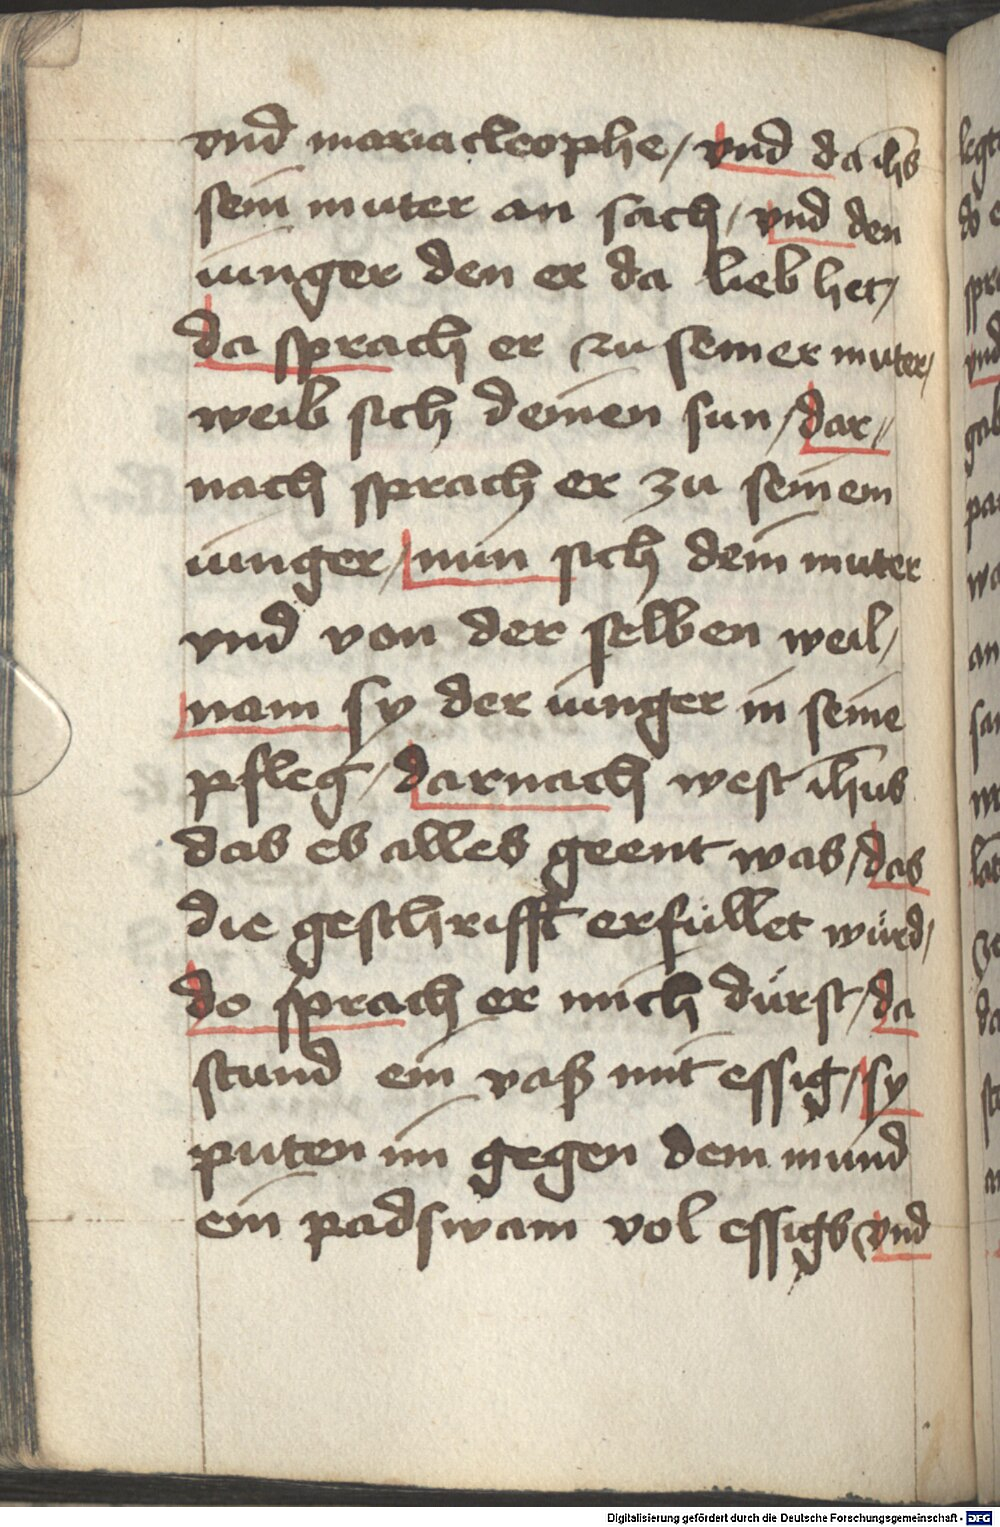 vnd maria cleophe / vnd da ihs
sein muter an sach / vnd den
iunger den er da lieb het /
da sprach er zu seiner muter /
weib sich deinen sun / dar//
nach sprach er zu seinem
iunger / nun sich dein muter
vnd von der selben weil /
nam sy der iunger in seine
pfleg / darnach west ihus
das es alles geent was / das
die geschrifft erfüllet würd /
do sprach er mich dürst / da
stund ein vaß mit essig / sy
puten im gegen dem mund
ein padswam vol essigs vnd
Digitalisierung gefördert durch die Deutsche Forschungsgemeinschaft - DFG